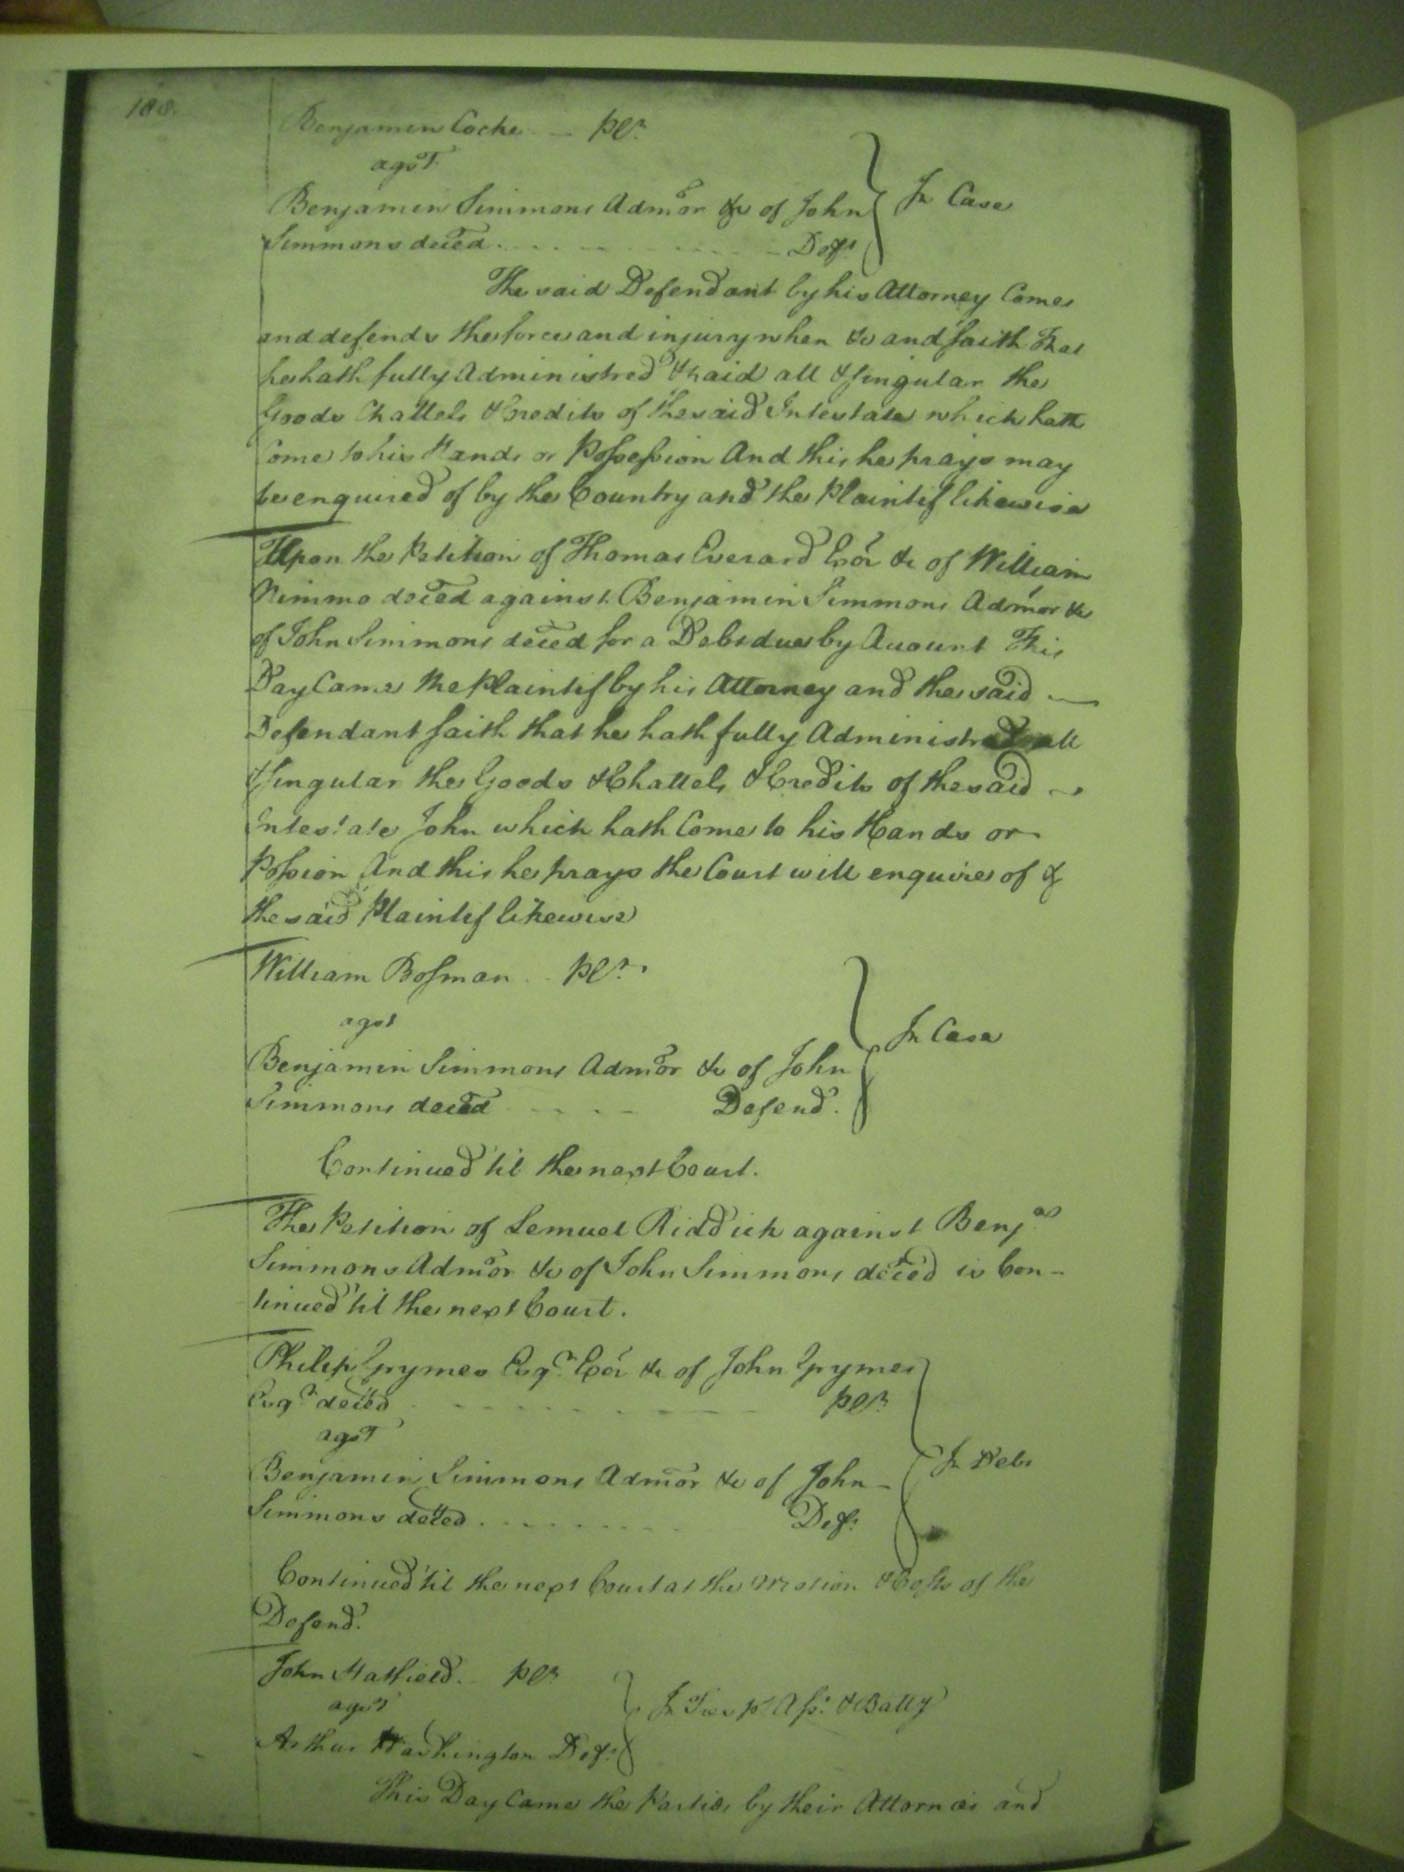 188.
Benjamin Cocke - plt.
agst.
Benjamin Simmons Admor &c of John
Simmons deced. Deft.
In Case
The said Defendant by his Attorney Comes
and defends the force and injury when &c and saith That
he hath fully Administred & paid all & Singular the
Goods Chattels & Credits of the said Intestate which hath
Come to his Hands or Possession And this he prays may
be enquired of by the Country and the Plaintif likewise
Upon the Petition of Thomas Everard Exor &c of William
Nimmo deced against Benjamin Simmons Admor &c
of John Simmons deced for a Debt due by Account This
Day Came the Plaintif by his Attorney and the said
Defendant saith that he hath fully Administred all
& Singular the Goods & Chattels & Credits of the said
Intestate John which hath Come to his Hands or
Possion And this he prays the Court will enquire of &
the said Plaintif likewise
William Bosman plt.
agst
Benjamin Simmons Admor &c of John
Simmons deced Defend.
In Case
Continued til the next Court.
The Petition of Lemuel Riddick against Benja
Simmons Admor &c of John Simmons deced is Con-
tinued til the next Court.
Philip Grymes Esqr. Exor &c of John Grymes
Esqr. deced plt.
agst
Benjamin Simmons Admor &c of John
Simmons deced. Deft.
In Debt
Continued til the next Court at the Motion & Costs of the
Defend.
John Hatfield. plt.
agst
Arthur Washington Deft.
In Tresps. Asst. & Batty
This Day Came the Parties by their Attornies and